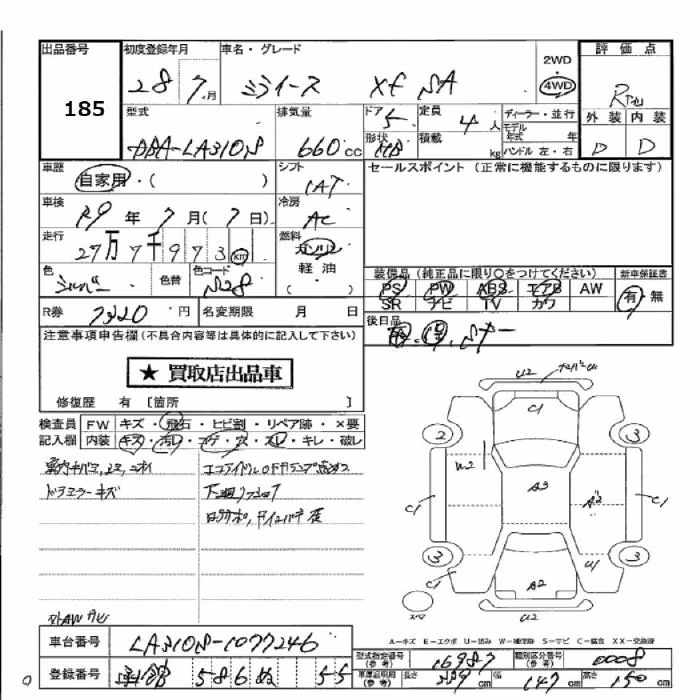 出品番号 初度登録年月 車名・グレード 評価点
185
28 7月 ミライース Xf SA
2WD
4WD
R
型式 排気量 ドア 定員 ディーラー・並行 外装 内装
DBA-LA310S 660cc 5 4人 モデル年式 年 D D
形状 積載 kg ハンドル 左・右
HB
車歴 シフト セールスポイント（正常に機能するものに限ります）
自家用・( ) IAT
車検 冷房
R9年 7月(7日) AC
走行 燃料
27万7千973km ガソリン
色 色替 色コード 軽油
シルバー S28 ( ・ )
装備品（純正品に限り○をつけてください） 新車保証書
PS PW ABS エアB AW 有・無
SR ナビ TV カワ
R券 7320円 名変期限 月 日
後日品
注意事項申告欄(不具合内容等は具体的に記入して下さい)
★ 買取店出品車
修復歴 有 [箇所 ]
検査員 FW キズ・飛石・ヒビ割・リペア跡・×要
記入欄 内装 キズ・汚レ・コゲ・穴・スレ・キレ・破レ
ドラミラーキズ
U2
C1
2 3
W2
C1 A3 A2 C1
3 3
C1 A2 U1
U2
A―キズ E―エクボ U―凹み W―補修跡 S―サビ C―腐食 XX―交換済
車台番号 LA310S-1077246
型式指定番号(参考) 16987 類別区分番号(参考) 0008
登録番号 586 ぬ 55
車庫証明用(参考) 長さ 339cm 幅 147cm 高さ 150cm